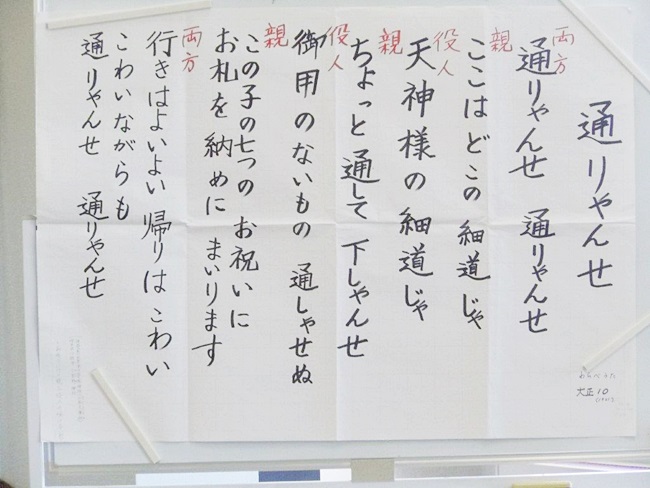 通りゃんせ
両方
通りゃんせ 通りゃんせ
親
ここはどこの 細道じゃ
役人
天神様の 細道じゃ
親
ちょっと通して 下しゃんせ
役人
御用のないもの 通しゃせぬ
親
この子の七つの お祝いに
お札を納めに まいります
両方
行きはよいよい 帰りはこわい
こわいながらも
通りゃんせ 通りゃんせ
わらべうた
大正10